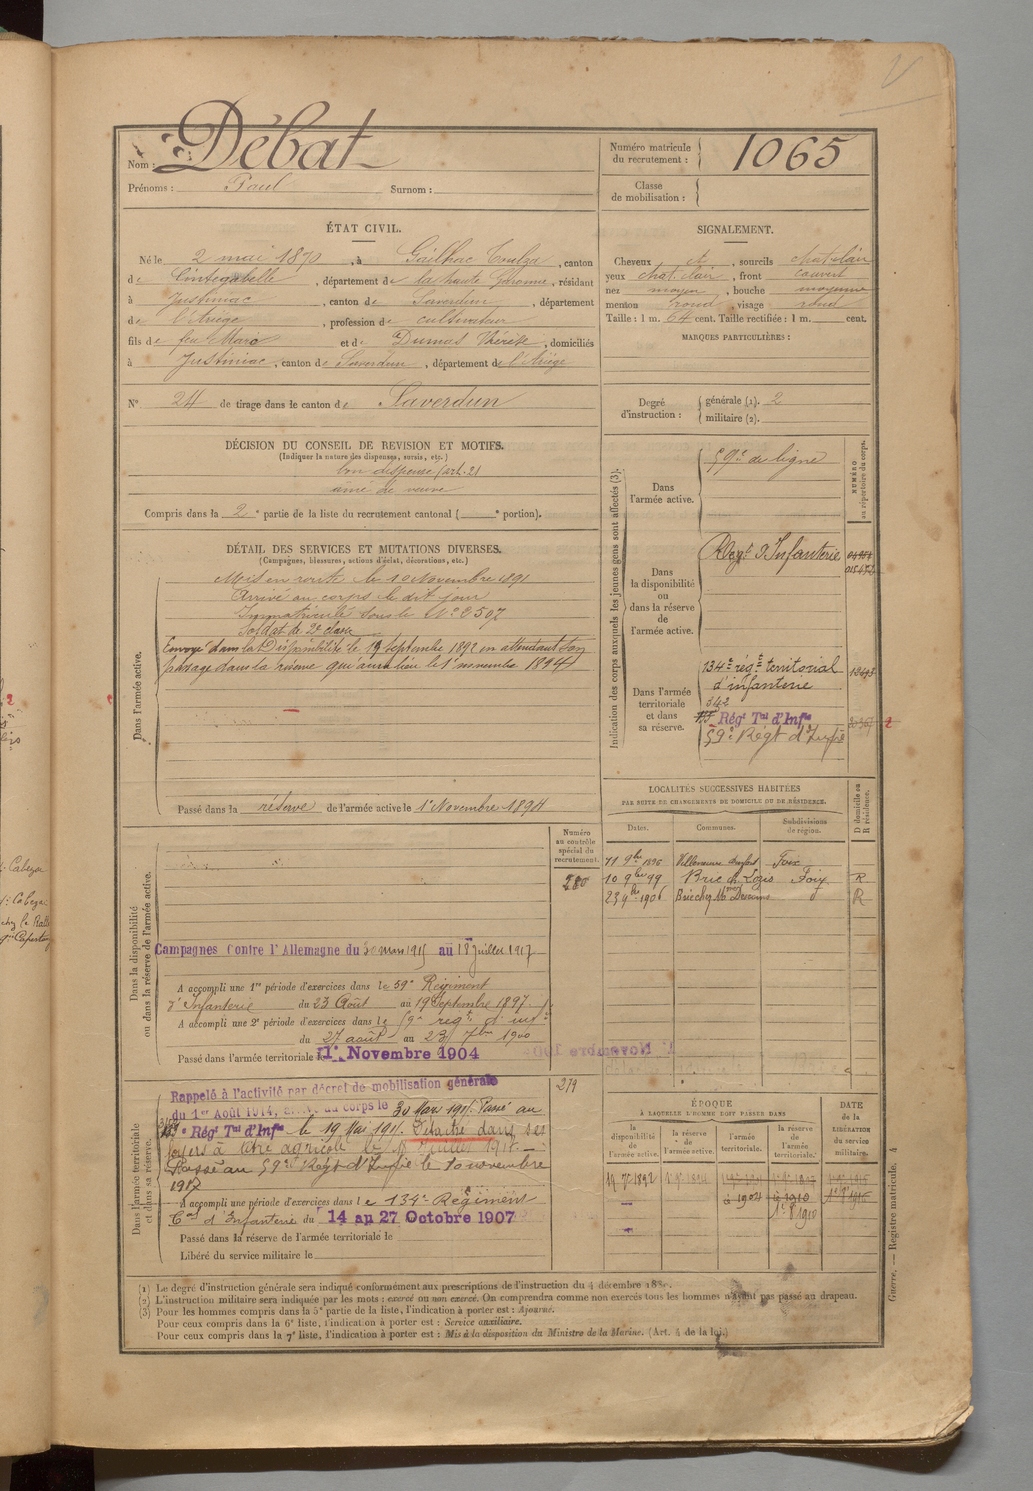 Nom : Débat
Prénoms : Paul Surnom :
Numéro matricule du recrutement : 1065
Classe de mobilisation :
ÉTAT CIVIL.
Né le 2 mai 1870, à Gailhac Toulza, canton
de Cintegabelle, département de la haute Garonne, résidant
à Justiniac, canton de Saverdun, département
de l'Ariège, profession de cultivateur
fils de feu Marc et de Dumas Thérèse, domiciliés
à Justiniac, canton de Saverdun, département de l'Ariège
N° 24 de tirage dans le canton de Saverdun
SIGNALEMENT.
Cheveux et, sourcils chat. clair
yeux chat. clair, front couvert
nez moyen, bouche moyenne
menton rond, visage rond
Taille : 1 m. 64 cent. Taille rectifiée : 1 m. cent.
MARQUES PARTICULIÈRES :
Degré d'instruction : générale (1). 2
militaire (2).
DÉCISION DU CONSEIL DE REVISION ET MOTIFS.
(Indiquer la nature des dispenses, sursis, etc.)
bon dispensé (art. 21
ainé de veuve
Compris dans la 2e partie de la liste du recrutement cantonal ( e portion).
DÉTAIL DES SERVICES ET MUTATIONS DIVERSES.
(Campagnes, blessures, actions d'éclat, décorations, etc.)
Dans l'armée active.
Mis en route le 10 Novembre 1891
Arrivé au corps le dit jour
Immatriculé sous le N° 2507
Soldat de 2e classe
Envoyé dans la Disponibilité le 19 septembre 1892 en attendant son
passage dans la réserve qui aura lieu le 1er novembre 1894
Passé dans la réserve de l'armée active le 1er Novembre 1894
Indication des corps auxquels les jeunes gens sont affectés (3).
NUMÉRO au répertoire du corps.
Dans l'armée active.
59e de ligne
Dans la disponibilité ou dans la réserve de l'armée active.
Régt d'Infanterie
Dans l'armée territoriale et dans sa réserve.
134e régt territorial
d'infanterie
Régt Tal d'Infie
59e Régt d'Infie
LOCALITÉS SUCCESSIVES HABITÉES
PAR SUITE DE CHANGEMENTS DE DOMICILE OU DE RÉSIDENCE.
Dates. Communes. Subdivisions de région. D domicile ou R résidence.
11 9bre 1896 Foix
10 9bre 99 Foix R
23 9bre 1906 R
Numéro au contrôle spécial du recrutement.
280
Dans la disponibilité ou dans la réserve de l'armée active.
Campagnes Contre l'Allemagne du 30 mars 1915 au 18 juillet 1917
A accompli une 1re période d'exercices dans le 59e Régiment
d'Infanterie du 23 Août au 19 Septembre 1897
A accompli une 2e période d'exercices dans le 59e régt d'inf
du 27 août au 23 7bre 1900
Passé dans l'armée territoriale le 1er Novembre 1904
279
Dans l'armée territoriale et dans sa réserve.
Rappelé à l'activité par décret de mobilisation générale
du 1er Août 1914, Arrivé au corps le 30 Mars 1915. Passé au
Régt Tal d'Infie le 19 Mai 1915. Détaché dans ses
foyers à titre agricole
Passé au 59e Régt d'Infie le 10 novembre
1917
A accompli une période d'exercices dans le 134e Régiment
Tal d'Infanterie du 14 au 27 Octobre 1907
Passé dans la réserve de l'armée territoriale le
Libéré du service militaire le
ÉPOQUE
À LAQUELLE L'HOMME DOIT PASSER DANS
la disponibilité de l'armée active.
la réserve de l'armée active.
l'armée territoriale.
la réserve de l'armée territoriale.
DATE de la LIBÉRATION du service militaire.
Guerre. — Registre matricule. 4
(1) Le degré d'instruction générale sera indiqué conformément aux prescriptions de l'instruction du 4 décembre 1889.
(2) L'instruction militaire sera indiquée par les mots : exercé ou non exercé. On comprendra comme non exercés tous les hommes n'ayant pas passé au drapeau.
(3) Pour les hommes compris dans la 5e partie de la liste, l'indication à porter est : Ajourné.
Pour ceux compris dans la 6e liste, l'indication à porter est : Service auxiliaire.
Pour ceux compris dans la 7e liste, l'indication à porter est : Mis à la disposition du Ministre de la Marine. (Art. 4 de la loi.)